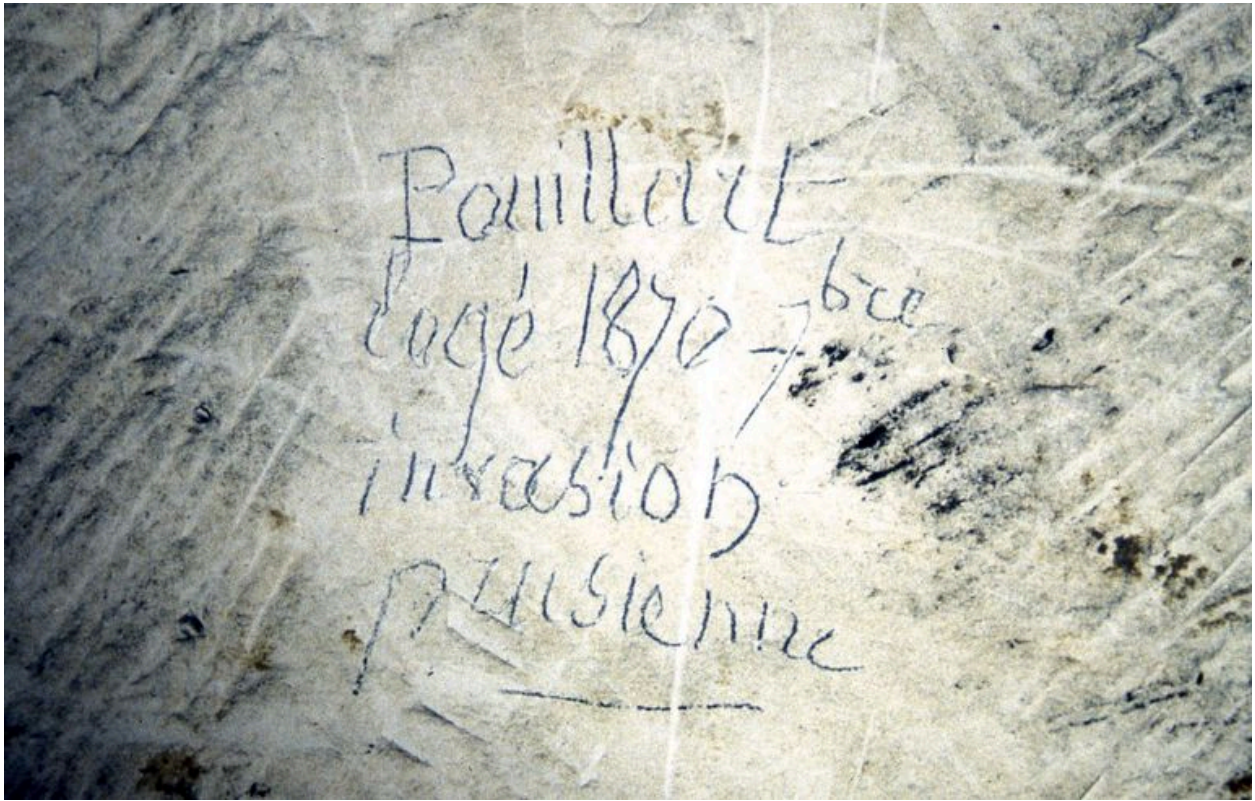 Pouillart
logé 1870 - 7bre
invasion
prusienne